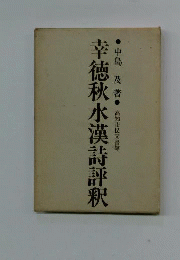 幸徳秋水漢詩評釈
●中島 及 著●
高知市民図書館